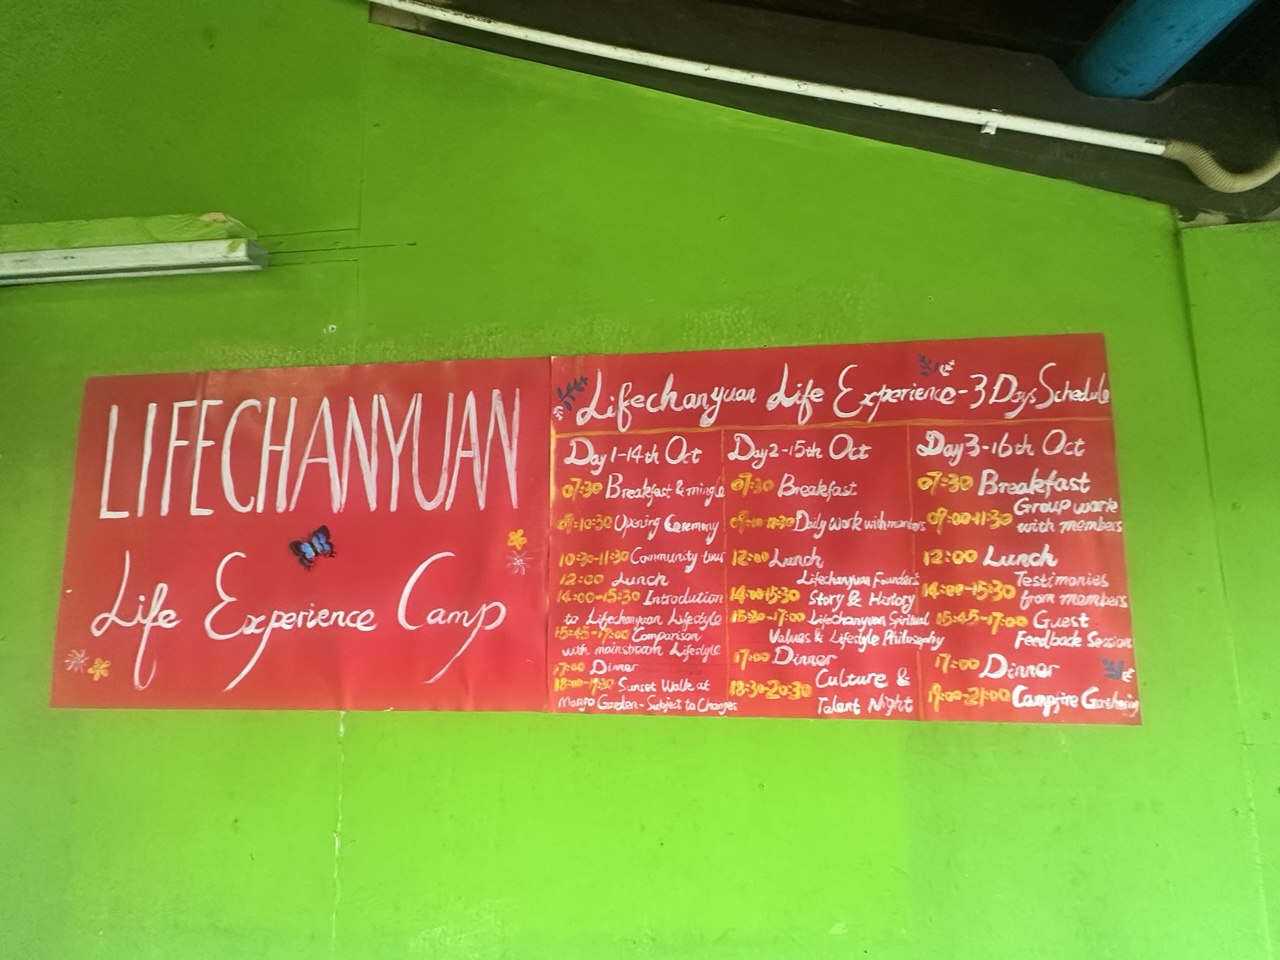 LIFECHANYUAN
Life Experience Camp
Lifechanyuan Life Experience-3 Days Schedule
Day 1-14th Oct
07:30 Breakfast & mingle
09:-10:30 Opening Ceremony
10:30-11:30 Community tour
12:00 Lunch
14:00-15:30 Introdution
to Lifechanyuan Lifestyle
15:45-17:00 Comparison
with mainstream Lifestyle
17:00 Dinner
18:00-19:30 Sunset Walk at
Mango Garden-Subject to Changes
Day2-15th Oct
07:30 Breakfast
Daily Work with members
12:00 Lunch
Lifechanyuan Founder's
14:00-15:30 Story & History
15:30-17:00 Lifechanyuan Spiritual
Values & Lifestyle Philosophy
17:00 Dinner
Culture &
18:30-20:30
Talent Night
Day3-16th Oct
07:30 Breakfast
Group work
09:00-11:30 with members
12:00 Lunch
Testimonies
14:00-15:30 from members
15:45-17:00 Guest
Feedback Session
17:00 Dinner
19:00-21:00 Campfire Gathering